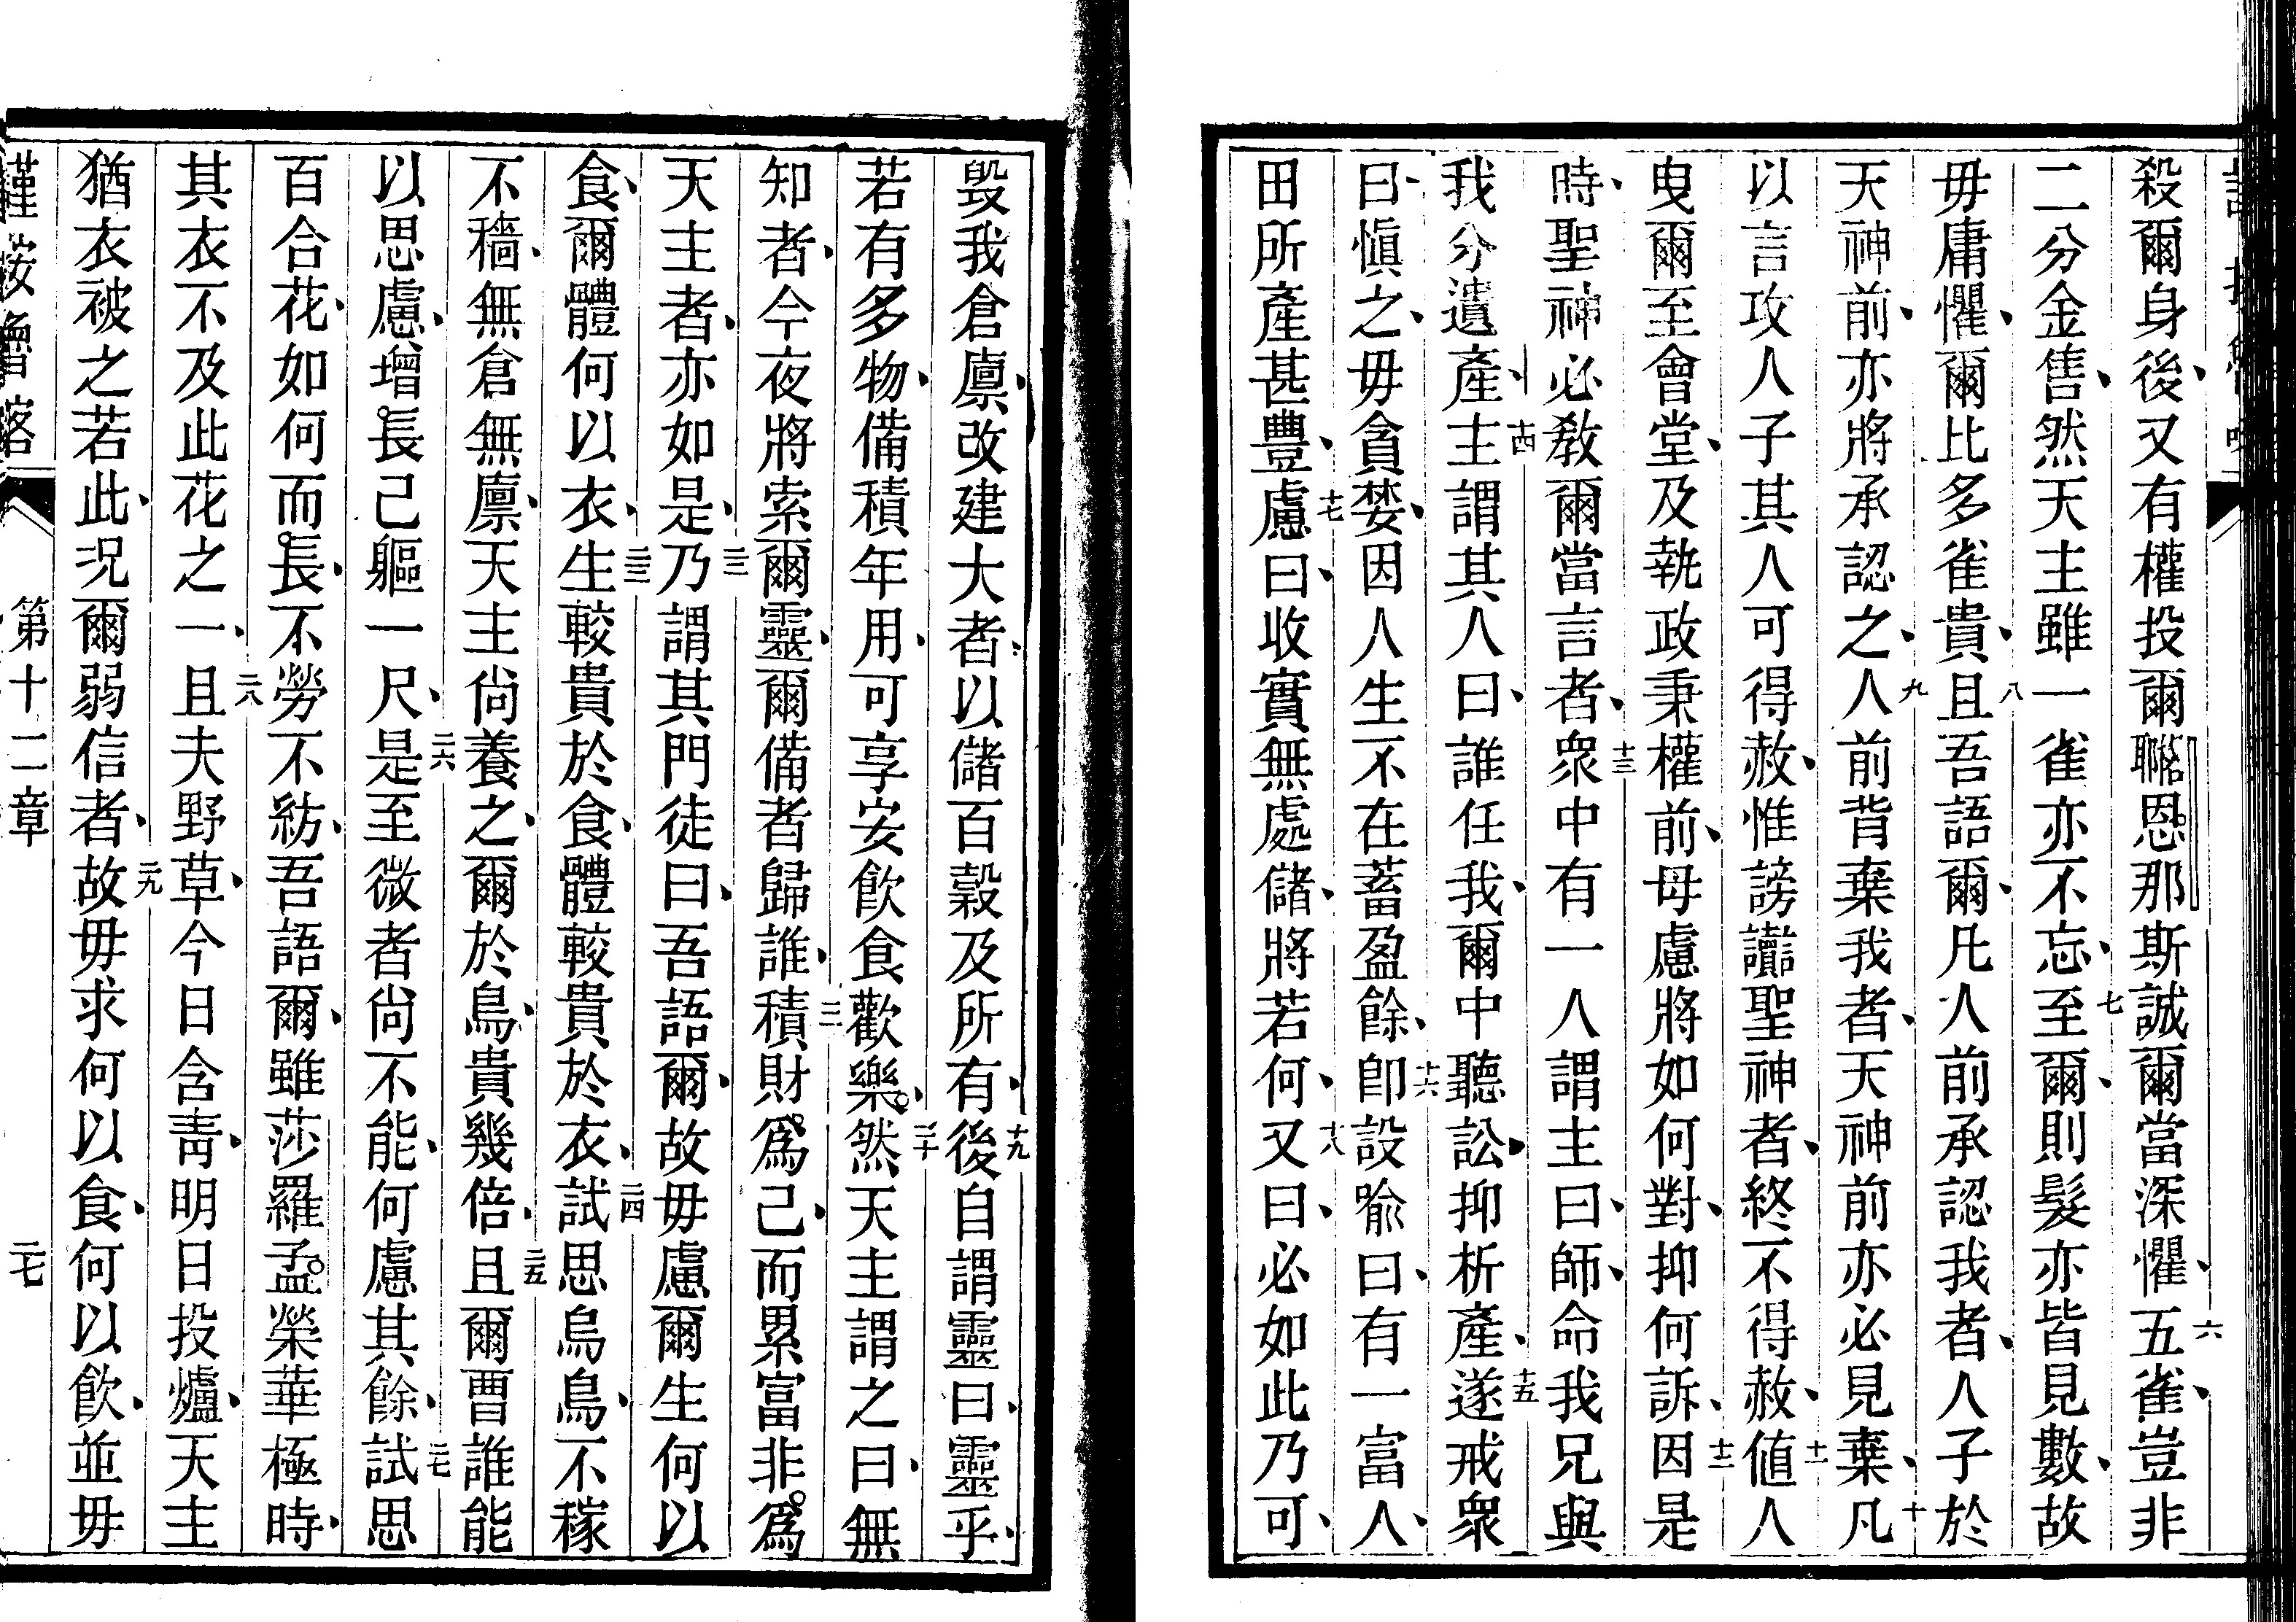 殺爾身後、又有權投爾𦗟恩那斯誠爾當深懼、六五雀、豈非
二分金售、然天主雖一雀亦不忘、七至爾、則髮亦皆見數、故
毋庸懼、爾比多雀貴、八且吾語爾、凡人前承認我者、人子於
天神前、亦將承認之、九人前背棄我者、天神前亦必見棄、十凡
以言攻人子其人可得赦、惟謗讟聖神者、終不得赦、十一値人
曳爾至會堂、及執政秉權前、毋慮將如何對、抑何訴、十二因是
時、聖神必教爾當言者、十三衆中有一人謂主曰、師、命我兄與
我分遺產、十四主謂其人曰、誰任我、爾中聽訟、抑析產、十五遂戒衆
曰、愼之、毋貪婪、因人生不在蓄盈餘、十六卽設喩曰、有一富人、
田所產甚豊、十七慮曰、收實無處儲、將若何、十八又曰、必如此乃可、
毀我倉廪、改建大者、以儲百榖及所有、十九後自謂靈曰、靈乎、
若有多物、備積年用、可享安飮食歡樂、二十然天主謂之曰、無
知者、今夜將索爾靈、爾備者歸誰、二一積財爲己、而累富非爲
天主者、亦如是、二二乃謂其門徒曰、吾語爾、故毋慮爾生何以
食、爾體何以衣、二三生較貴於食、體較貴於衣、二四試思烏鳥、不稼
不穡、無倉無廪、天主尙養之、爾於鳥、貴幾倍、二五且爾曹誰能
以思慮、增長己軀一尺、二六是至微者尙不能、何慮其餘、二七試思
百合花、如何而長、不勞不紡、吾語爾、雖莎羅孟榮華極時、
其衣不及此花之一、二八且夫野草、今日含靑、明日投爐、天主
猶衣被之若此、况爾弱信者、二九故毋求何以食、何以飮、並毋
第十二章 二七